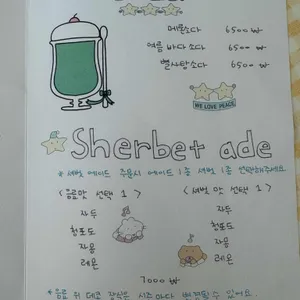 메론소다 6500₩
여름 바다 소다 6500₩
별사탕소다 6500₩
WE LOVE PEACE
Sherbet ade
* 셔벗 에이드 주문시 에이드 1종 셔벗 1종 선택해주세요
<음료맛 선택 1> <셔벗 맛 선택 1>
자두 자두
청포도 청포도
자몽 자몽
레몬 레몬
7000₩
*음료 위 데코 장식은 시즌마다 변경될 수 있어요.